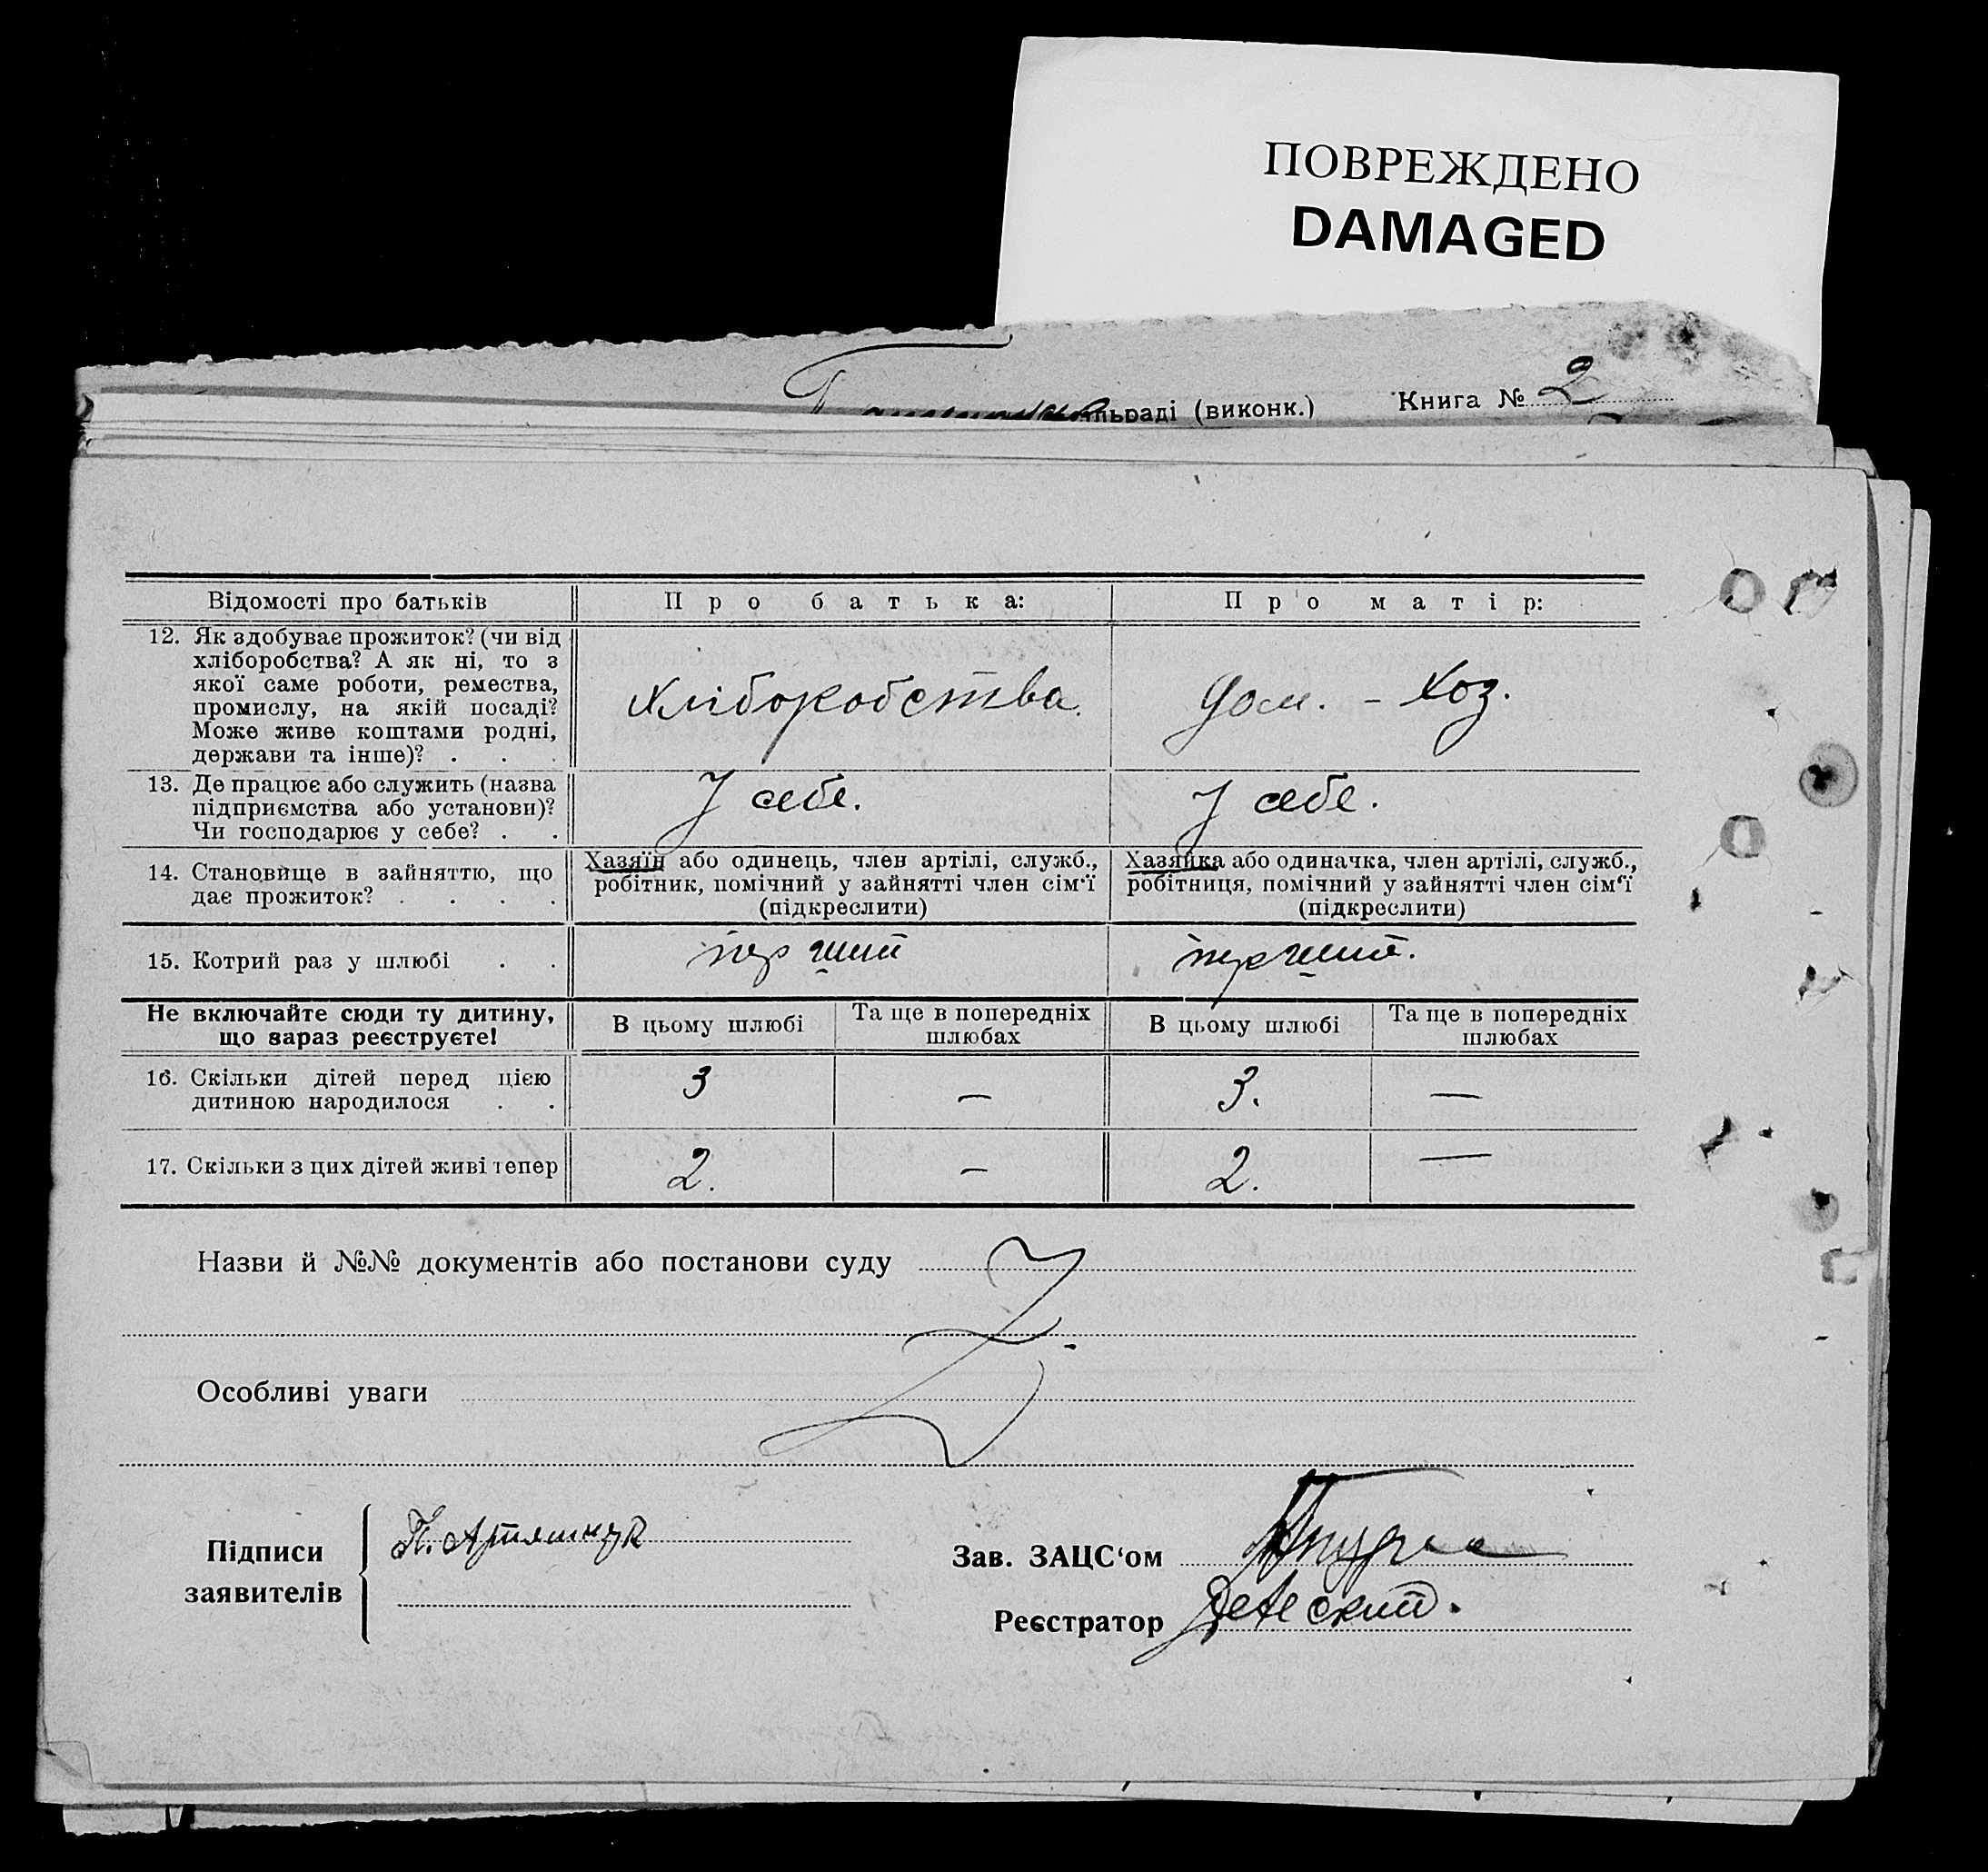 ПОВРЕЖДЕНО
DAMAGED
льраді (виконк.) Книга № 2
Відомості про батьків Про батька: Про матір:
12. Як здобуває прожиток? (чи від
хліборобства? А як ні, то з
якої саме роботи, ремества,
промислу, на якій посаді?
Може живе коштами родні,
держави та інше)? . . .
Хліборобства. Дом. - Хоз.
13. Де працює або служить (назва
підприємства або установи)?
Чи господарює у себе? . .
У себе. У себе.
14. Становище в зайняттю, що
дає прожиток? . . . .
Хазяїн або одинець, член артілі, служб.,
робітник, помічний у зайнятті член сім'ї
(підкреслити)
Хазяйка або одиначка, член артілі, служб.,
робітниця, помічний у зайнятті член сім'ї
(підкреслити)
15. Котрий раз у шлюбі . . перший перший.
Не включайте сюди ту дитину,
що зараз реєструєте!
В цьому шлюбі Та ще в попередніх шлюбах В цьому шлюбі Та ще в попередніх шлюбах
16. Скільки дітей перед цією
дитиною народилося . .
3 — 3. —
17. Скільки з цих дітей живі тепер 2. — 2. —
Назви й №№ документів або постанови суду
Особливі уваги
Підписи
заявителів
Зав. ЗАЦС'ом
Реєстратор